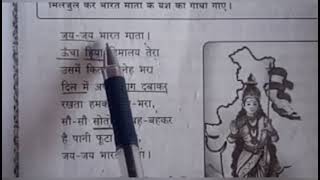 मिलजुल कर भारत माता के यश की गाथा गाएँ।
जय-जय भारत माता।
ऊँचा हिया हिमालय तेरा
उसमें भरा
दिल में दबाकर
रखता हमको भरा,
सौ-सौ बह-बहकर
है पानी फूटा
जय-जय भारत माता।